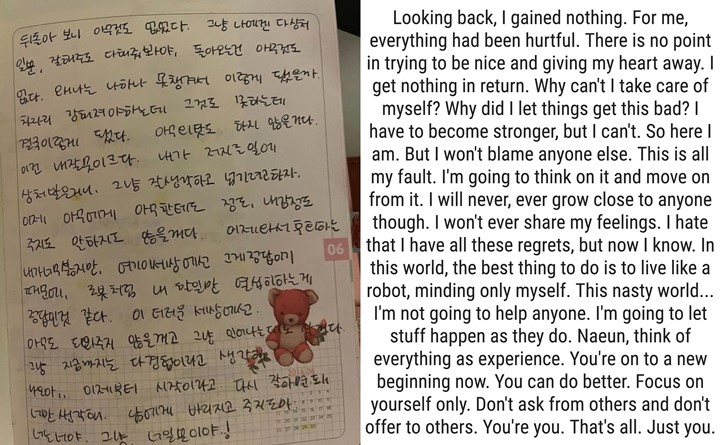 뒤돌아 보니 아무것도 없었다. 그냥 나에겐 다상처
일뿐, 잘해주도 다해줘봐야, 돌아오는건 아무것도
없다. 왜 나는 나하나 못챙겨서 이렇게 됐을까
차라리 강해져야하는데 그것도 못하는데
결국이렇게 됐다. 하지 않을거다.
이건 내잘못이크다. 내가 저지른일에
상처받은거니, 그냥 잘생각하고 넘기려고하자.
이제 아무에게 아무한테도 정도, 내감정도
주지도 않을꺼다. 이제와서 후회하는
내가 싫지만, 여기이세상에선 그게정답이기
때문에, 로봇처럼 내 할일만 열심히하는게
정답인것 같다. 이 더러운 세상에선.
아무도 도와주지 않을꺼고 그냥 일어나는대로
그냥 지금까지는 다경험이라고
나은아.. 이제부터 시작이라고 다시 잘하면돼
너만생각해. 남에게 바라지고 주지도마
너는너야. 그냥 너일뿐이야.!
06
Looking back, I gained nothing. For me,
everything had been hurtful. There is no point
in trying to be nice and giving my heart away. I
get nothing in return. Why can't I take care of
myself? Why did I let things get this bad? I
have to become stronger, but I can't. So here I
am. But I won't blame anyone else. This is all
my fault. I'm going to think on it and move on
from it. I will never, ever grow close to anyone
though. I won't ever share my feelings. I hate
that I have all these regrets, but now I know. In
this world, the best thing to do is to live like a
robot, minding only myself. This nasty world...
I'm not going to help anyone. I'm going to let
stuff happen as they do. Naeun, think of
everything as experience. You're on to a new
beginning now. You can do better. Focus on
yourself only. Don't ask from others and don't
offer to others. You're you. That's all. Just you.